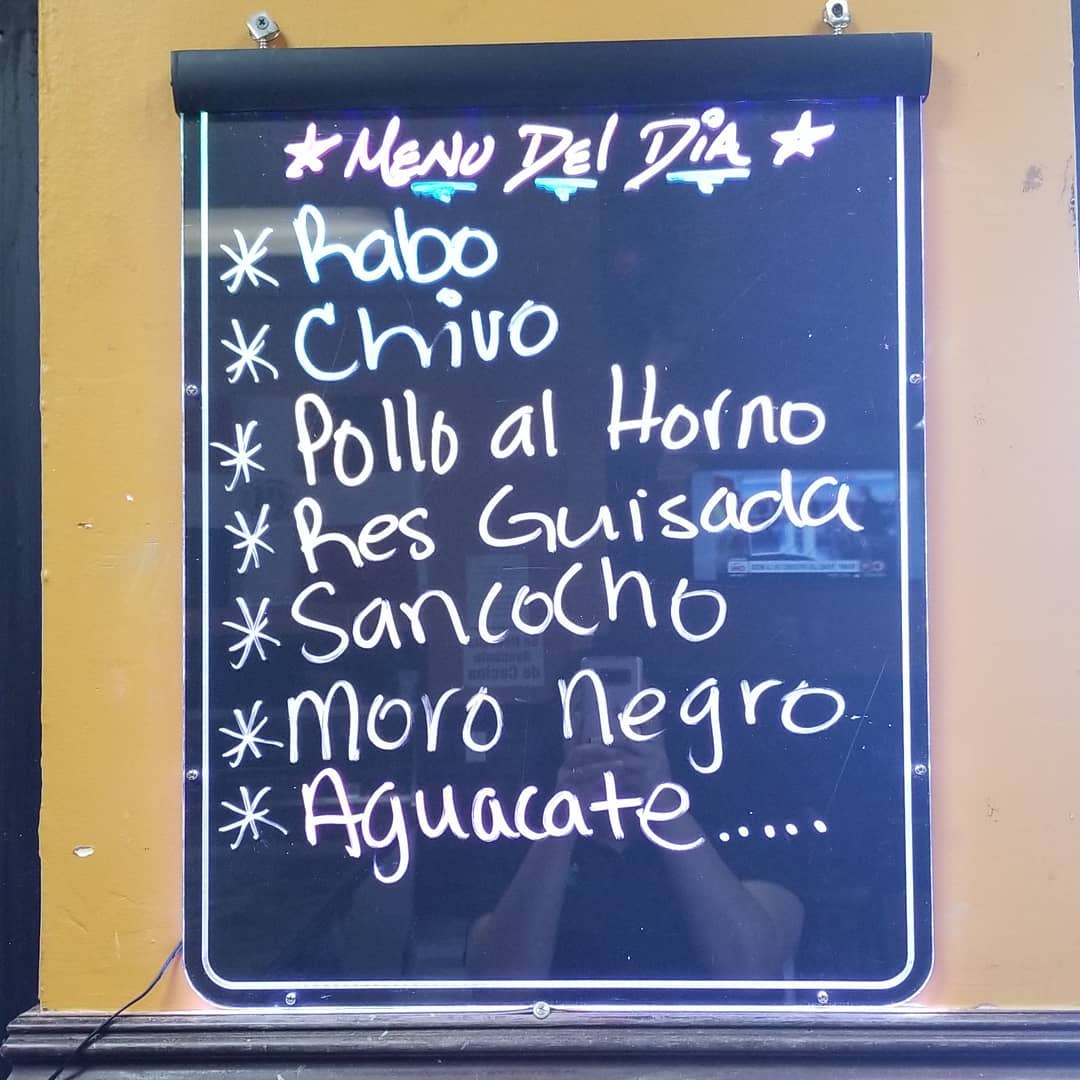 ★ MENU DEl DiA ★
* Rabo
* Chivo
* Pollo al Horno
* Res Guisada
* SancoCho
* Moro negro
* Aguacate.....